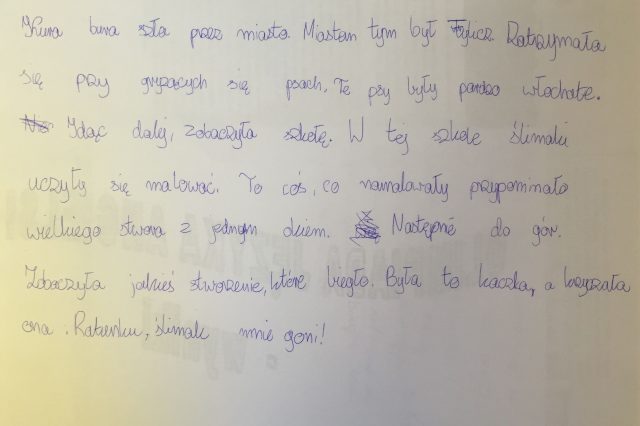 Kura bura szła przez miasto. Miastem tym był Tylicz. Zatrzymała
się przy gryzących się psach. Te psy były bardzo włochate.
Idąc dalej, zobaczyła szkołę. W tej szkole ślimaki
uczyły się malować. To coś, co namalowały przypominało
wielkiego stwora z jednym okiem. Następnie do gór.
Zobaczyła jakieś stworzenie, które biegło. Była to kaczka, a krzyczała
ona : Ratunku, ślimak mnie goni!